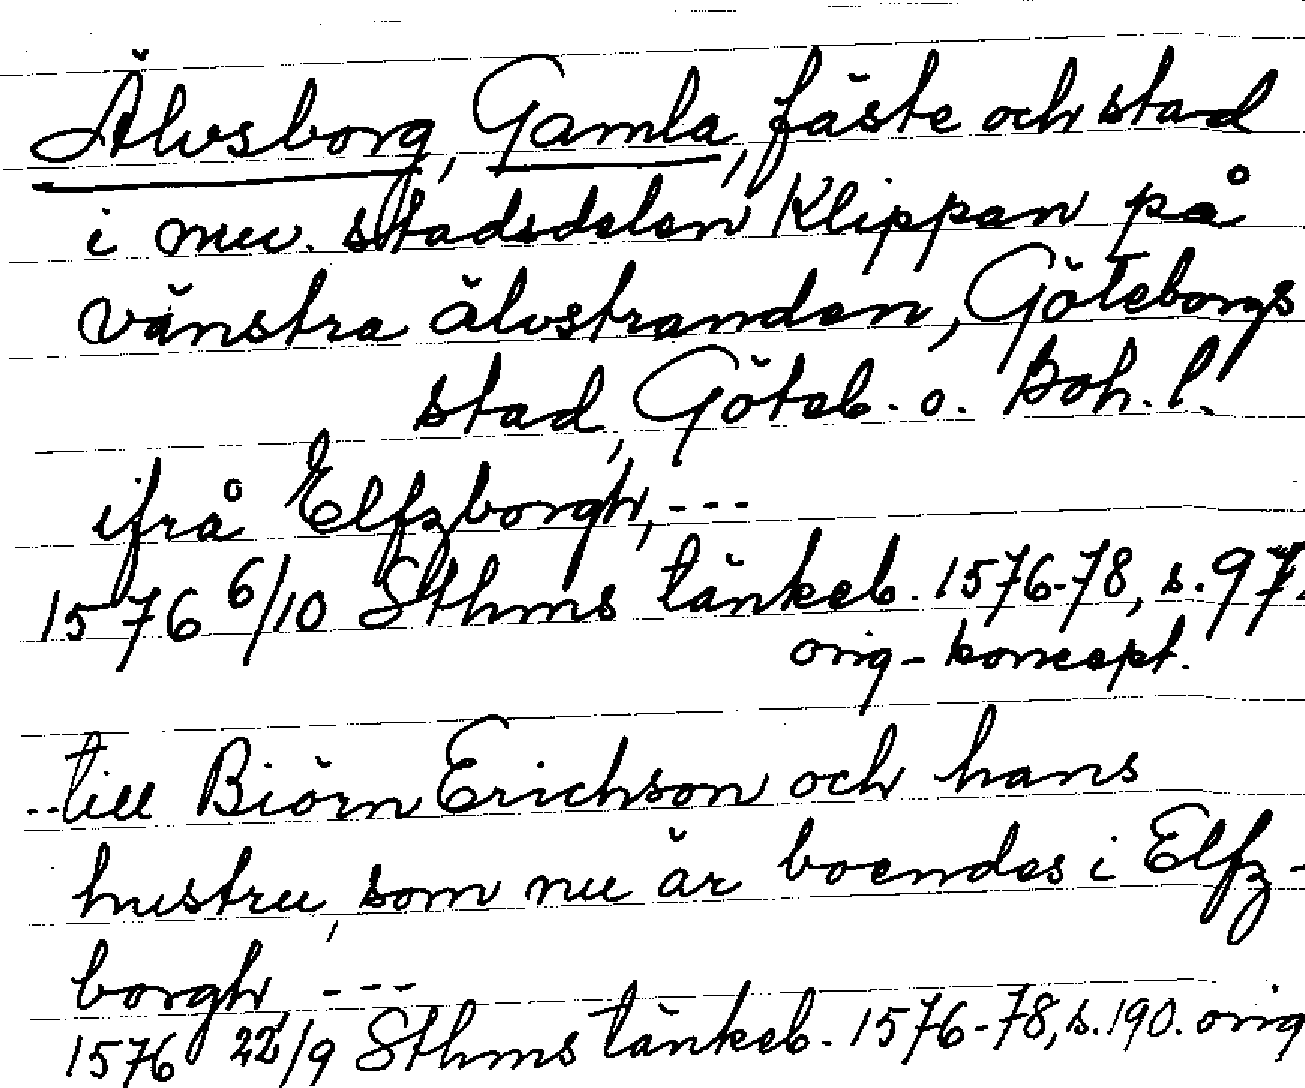 Älvsborg, Gamla, fäste och stad
i nuv. stadsdelen Klippan på
vänstra älvstranden, Göteborgs
stad, Göteb. o. Boh. l.
ifrå Elfzborgh, ---
1576 6/10 Sthms tänkeb. 1576-78, s. 97.
orig-koncept.
..till Biörn Erichson och hans
hustru, som nu är boendes i Elfz-
borgh, ---
1576 22/9 Sthms tänkeb. 1576-78, s. 190. orig